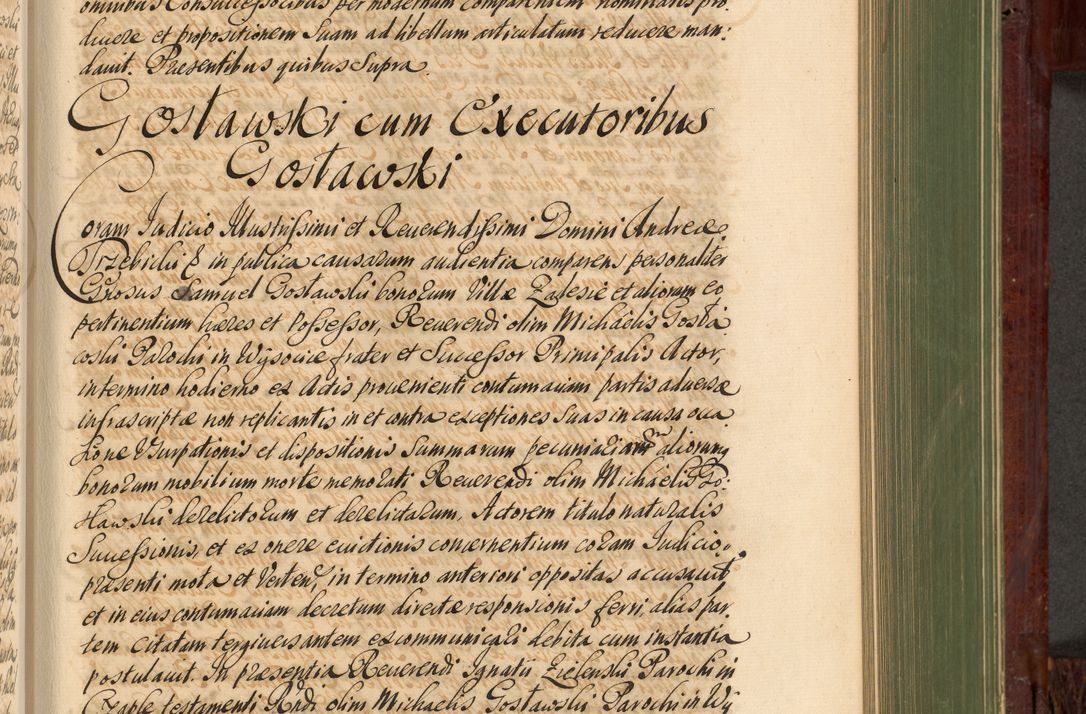 omnibus Consuccessoribus per modernum comparentem nominatis pro:
ducere et propositionem Suam ad libellum articulatum reducere man:
davit. Præsentibus quibus Supra.
Gosławski cum Executoribus
Gosławski
Coram Judicio Illustrissimi et Reverendissimi Domini Andreæ
Trzebicki & in publica causarum audientia comparens personaliter
Gnosus Samuel Gosławski bonorum Villæ Zalesie et aliorum eo
pertinentium hæres et Possessor, Reverendi olim Michaelis Gosła
wski Parochi in Wysocice frater et Successor Principalis Actor,
in termino hodierno ex Actis provenienti contumaciam partis adversæ
infrascriptæ non replicantis in et contra exceptiones suas in causa occa
sione Usurpationis et dispositionis summarum pecuniariarum aliorum
bonorum mobilium morte memorati Reverendi olim Michaelis Go:
sławski derelictorum et derelictarum, Actorem titulo naturalis
Successionis, et ex onere evictionis concernentium coram Judicio
præsenti mota et Verten, in termino anteriori oppositas accusavit,
et in eius contumaciam decretum directæ responsionis ferri, alias par
tem Citatam tergiversantem excommunicari debita cum instantia
postulavit. In præsentia Reverendi Ignatii Zielenski Parochi in
Czaple testamenti Rndi olim Michaelis Gosławski Parochi in Wy